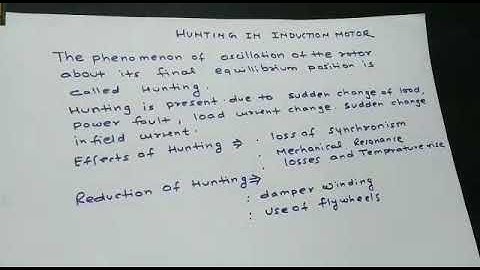 HUNTING IN INDUCTION MOTOR
The phenomenon of oscillation of the rotor
about its final equilibrium position is
called Hunting.
Hunting is present due to sudden change of load,
power fault, load current change, sudden change
in field current.
Effects of Hunting ⇒ : loss of synchronism
: Mechanical Resonance
: losses and Temperature rise
Reduction of Hunting ⇒
: damper winding
: use of flywheels